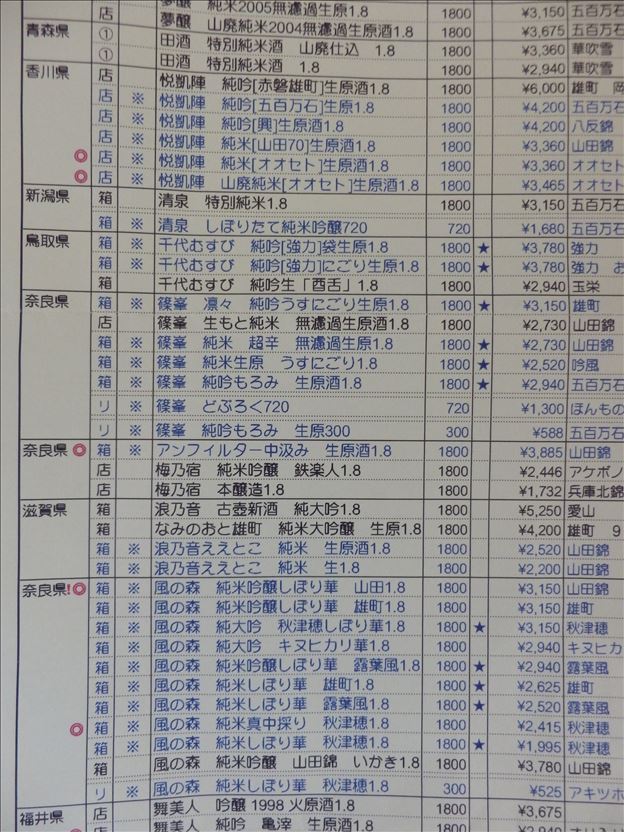 店 夢醸 純米2005無濾過生原1.8 1800 ¥3,150 五百万石
青森県 ① 夢醸 山廃純米2004無濾過生原酒1.8 1800 ¥3,675 五百万石
① 田酒 特別純米酒 山廃仕込 1.8 1800 ¥3,360 華吹雪
田酒 特別純米酒 1.8 1800 ¥2,940 華吹雪
香川県 店 悦凱陣 純吟[赤磐雄町]生原酒1.8 1800 ¥6,000 雄町
店 ※ 悦凱陣 純吟[五百万石]生原1.8 1800 ¥4,200 五百万
店 ※ 悦凱陣 純吟[興]生原酒1.8 1800 ¥4,200 八反錦
店 ※ 悦凱陣 純米[山田70]生原酒1.8 1800 ¥3,360 山田錦
◎ 店 ※ 悦凱陣 純米[オオセト]生原酒1.8 1800 ¥3,360 オオセト
◎ 店 ※ 悦凱陣 山廃純米[オオセト]生原酒1.8 1800 ¥3,465 オオセト
新潟県 箱 清泉 特別純米1.8 1800 ¥3,150 五百万石
箱 ※ 清泉 しぼりたて純米吟醸720 720 ¥1,680 五百万石
鳥取県 箱 ※ 千代むすび 純吟[強力]袋生原1.8 1800 ★ ¥3,780 強力
箱 ※ 千代むすび 純吟[強力]にごり生原1.8 1800 ★ ¥3,780 強力 お
箱 千代むすび 純吟生「酉舌」1.8 1800 ¥2,940 玉栄
奈良県 箱 ※ 篠峯 凛々 純吟うすにごり生原1.8 1800 ★ ¥3,150 雄町
店 篠峯 生もと純米 無濾過生原酒1.8 1800 ¥2,730 山田錦
箱 ※ 篠峯 純米 超辛 無濾過生原1.8 1800 ★ ¥2,730 山田錦
箱 ※ 篠峯 純米生原 うすにごり1.8 1800 ★ ¥2,520 吟風
箱 ※ 篠峯 純吟もろみ 生原酒1.8 1800 ★ ¥2,940 五百万石
リ ※ 篠峯 どぶろく720 720 ¥1,300 ほんもの
リ ※ 篠峯 純吟もろみ 生原300 300 ¥588 五百万石
奈良県 ◎ 箱 ※ アンフィルター中汲み 生原酒1.8 1800 ¥3,885 山田錦
店 梅乃宿 純米吟醸 鉄楽人1.8 1800 ¥2,446 アケボノ
店 梅乃宿 本醸造1.8 1800 ¥1,732 兵庫北錦
滋賀県 箱 浪乃音 古壺新酒 純大吟1.8 1800 ¥5,250 愛山
箱 なみのおと雄町 純米大吟醸 生原1.8 1800 ¥4,200 雄町 9
箱 ※ 浪乃音ええとこ 純米 生原酒1.8 1800 ¥2,520 山田錦
箱 ※ 浪乃音ええとこ 純米 生1.8 1800 ¥2,200 山田錦
奈良県! ◎ 箱 ※ 風の森 純米吟醸しぼり華 山田1.8 1800 ¥3,150 山田錦
箱 ※ 風の森 純米吟醸しぼり華 雄町1.8 1800 ¥3,150 雄町
箱 ※ 風の森 純大吟 秋津穂しぼり華1.8 1800 ★ ¥3,150 秋津穂
箱 ※ 風の森 純大吟 キヌヒカリ華1.8 1800 ¥2,940 キヌヒカ
箱 ※ 風の森 純米吟醸しぼり華 露葉風1.8 1800 ★ ¥2,940 露葉風
箱 ※ 風の森 純米しぼり華 雄町1.8 1800 ★ ¥2,625 雄町
箱 ※ 風の森 純米しぼり華 露葉風1.8 1800 ★ ¥2,520 露葉風
◎ 箱 ※ 風の森 純米真中採り 秋津穂1.8 1800 ¥2,415 秋津穂
箱 ※ 風の森 純米しぼり華 秋津穂1.8 1800 ★ ¥1,995 秋津穂
箱 風の森 純米吟醸 山田錦 いかき1.8 1800 ¥3,780 山田錦
リ ※ 風の森 純米しぼり華 秋津穂1.8 300 ¥525 アキツホ
福井県 店 舞美人 吟醸1998火原酒1.8 1800 ¥3,675
店 舞美人 純吟 亀滓 生原酒1.8 1800